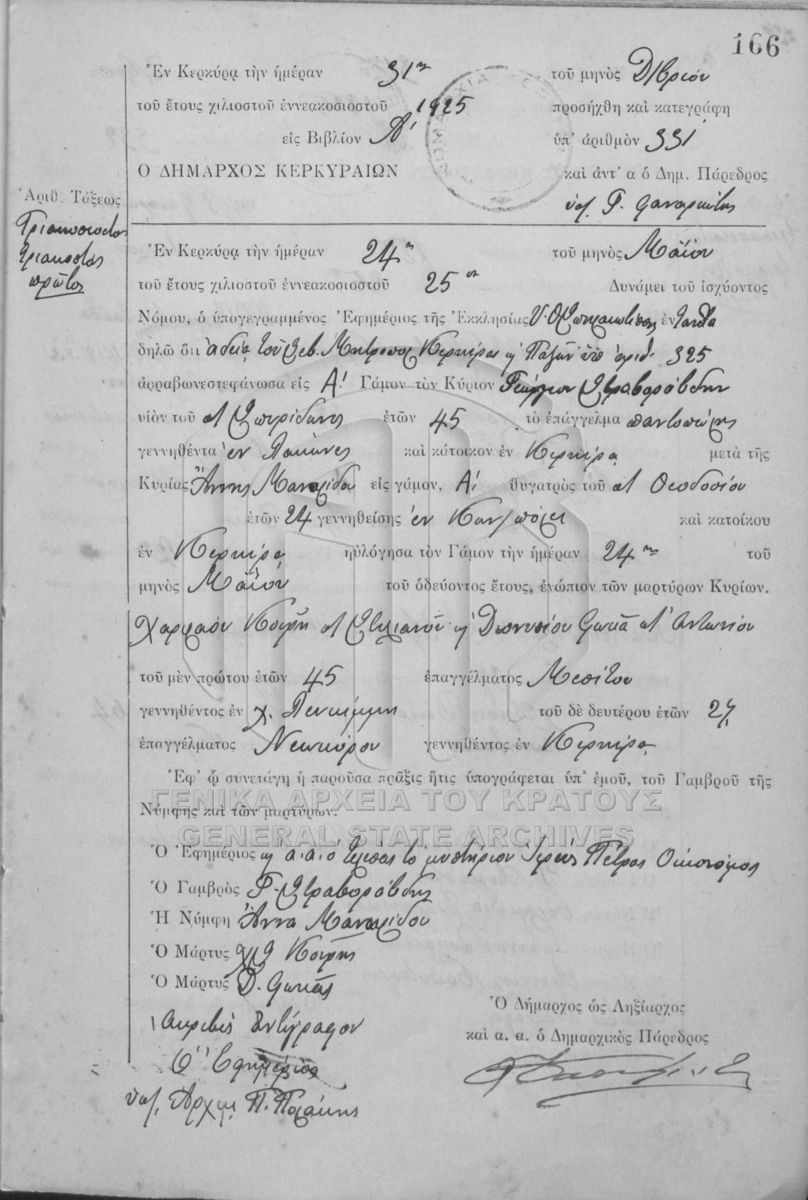 166
Ἐν Κερκύρᾳ τὴν ἡμέραν 31ην τοῦ μηνὸς Δ/βρίου
τοῦ ἔτους χιλιοστοῦ ἐννεακοσιοστοῦ 1925 προσήχθη καὶ κατεγράφη
εἰς Βιβλίον Α' ὑπ' ἀριθμὸν 331
Ο ΔΗΜΑΡΧΟΣ ΚΕΡΚΥΡΑΙΩΝ καὶ ἀντ' α ὁ Δημ. Πάρεδρος
Ἀριθ. Τάξεως
Τριακοσιοστὸς
τριακοστὸς
πρῶτος
Ἐν Κερκύρᾳ τὴν ἡμέραν 24η τοῦ μηνὸς Μαΐου
τοῦ ἔτους χιλιοστοῦ ἐννεακοσιοστοῦ 25ου Δυνάμει τοῦ ἰσχύοντος
Νόμου, ὁ ὑπογεγραμμένος Ἐφημέριος τῆς Ἐκκλησίας ἐν
δηλῶ ὅτι ἀδείᾳ τοῦ Σεβ. Μητροπολ Κερκύρας κ Παξῶν ὑπὸ ἀριθ. 325
ἀρραβωνεστεφάνωσα εἰς Α! Γάμον τὸν Κύριον Γεώργιον
υἱὸν τοῦ Σπυρίδωνος ἐτῶν 45 τὸ ἐπάγγελμα παντοπώλης
γεννηθέντα ἐν καὶ κάτοικον ἐν Κερκύρᾳ μετὰ τῆς
Κυρίας Ἄννης εἰς γάμον, Α! θυγατρὸς τοῦ Θεοδοσίου
ἐτῶν 24 γεννηθείσης ἐν Κων/πόλει καὶ κατοίκου
ἐν Κερκύρᾳ ηὐλόγησα τὸν Γάμον τὴν ἡμέραν 24ην τοῦ
μηνὸς Μαΐου τοῦ ὁδεύοντος ἔτους, ἐνώπιον τῶν μαρτύρων Κυρίων.
Στυλιανοῦ κ Διονυσίου Φωκᾶ Ἀντωνίου
τοῦ μὲν πρώτου ἐτῶν 45 ἐπαγγέλματος Μεσίτου
γεννηθέντος ἐν χ. Λευκίμμῃ τοῦ δὲ δευτέρου ἐτῶν 27
ἐπαγγέλματος Νεωκόρου γεννηθέντος ἐν Κερκύρᾳ
Ἐφ' ᾧ συνετάγη ἡ παροῦσα πρᾶξις ἥτις ὑπογράφεται ὑπ' ἐμοῦ, τοῦ Γαμβροῦ τῆς
Νύμφης καὶ τῶν μαρτύρων.
ΓΕΝΙΚΑ ΑΡΧΕΙΑ ΤΟΥ ΚΡΑΤΟΥΣ
GENERAL STATE ARCHIVES
Ὁ Ἐφημέριος κ α.α. ὁ τελέσας τὸ μυστήριον Ἱερεὺς Πέτρος Οἰκονόμος
Ὁ Γαμβρὸς Γ.
Ἡ Νύμφη Ἄννα
Ὁ Μάρτυς
Ὁ Μάρτυς Δ. Φωκᾶς
Ἀκριβὲς Ἀντίγραφον
Ὁ Ἐφημέριος
Ὁ Δήμαρχος ὡς Ληξίαρχος
καὶ α. α. ὁ Δημαρχικὸς Πάρεδρος